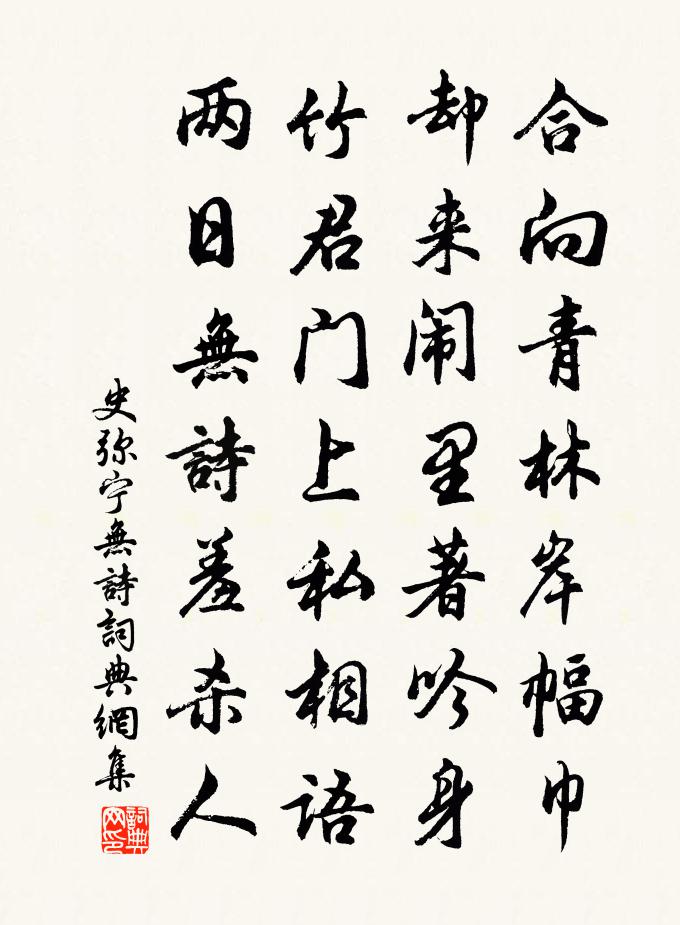 合向青林岸幅巾
却来闹里著吟身
竹君门上私相语
两日無詩羞杀人
史弥宁無詩詞典網集
詞典网印